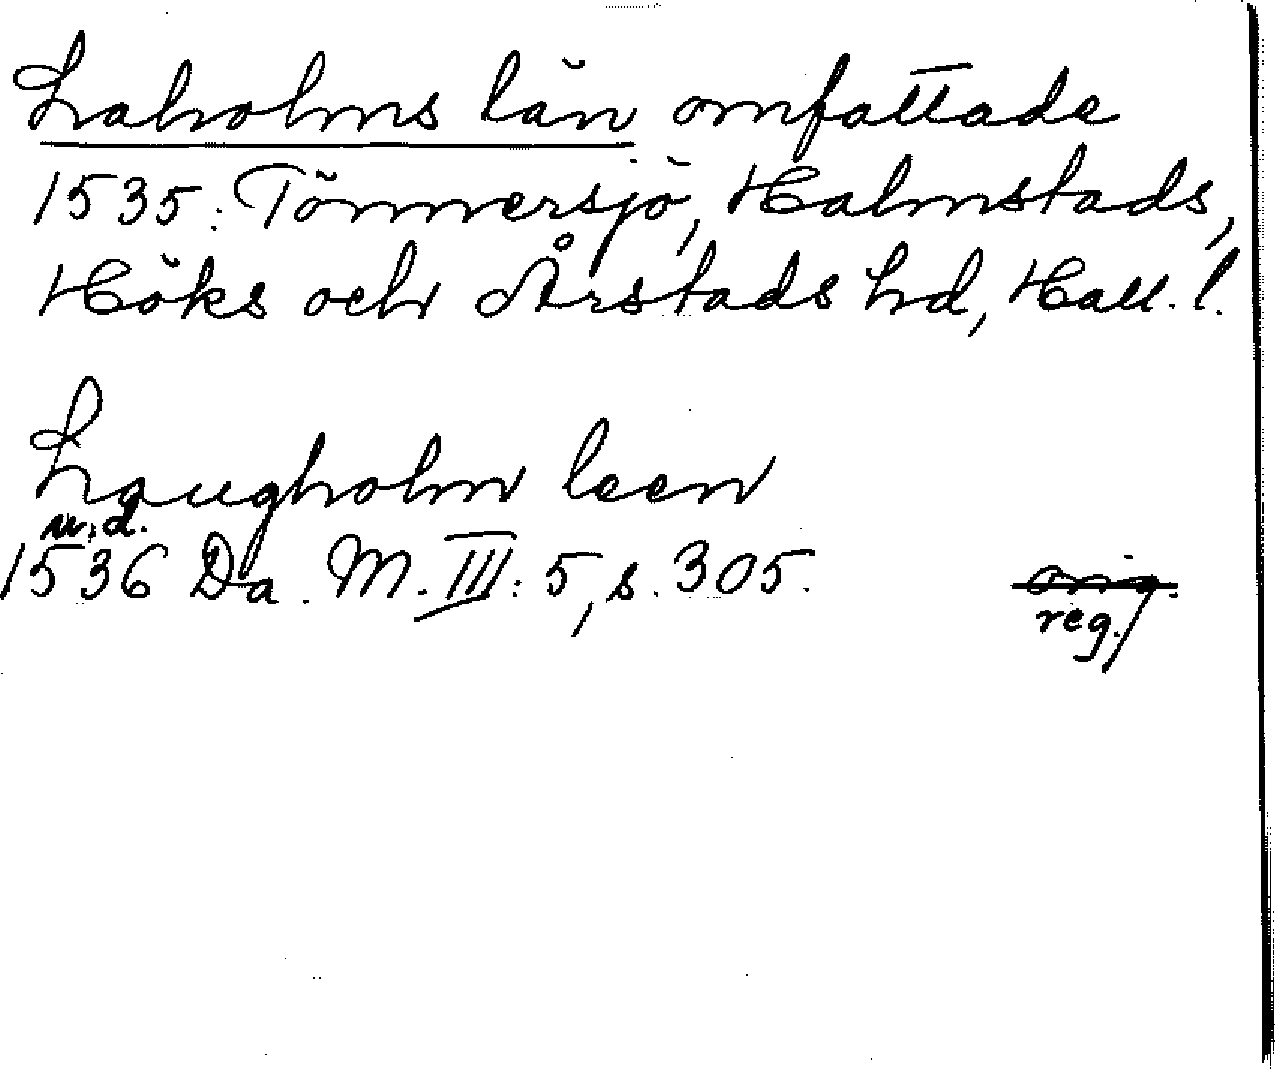 Laholms län omfattade
1535: Tönnersjö, Halmstads,
Höks och Årstads hd, Hall. l.
Laugholm leen
u.d.
1536 Da. M. III: 5, s. 305.
orig.
reg.